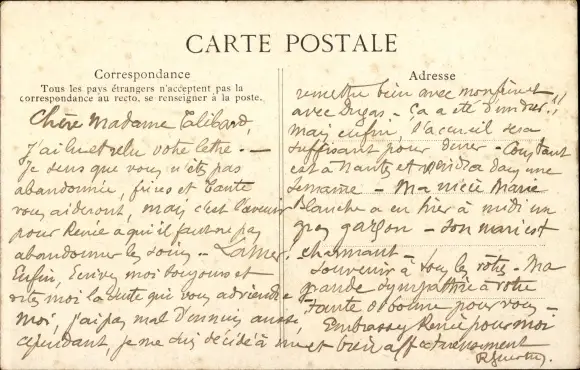 CARTE POSTALE
Correspondance
Tous les pays étrangers n'acceptent pas la
correspondance au recto, se renseigner à la poste.
Chère Madame Talibard,
J'ai lu et relu votre lettre. —
Je sens que vous n'êtes pas
abandonnée, frères et tante
vous aideront, mais c'est l'avenir
pour Renée à qui il faut ne pas
abandonner les soins
Enfin, Ecrivez moi toujours et
dites moi la suite qui vous
moi, j'ai pas mal d'ennuis aussi,
cependant, je me suis décidé à me
Adresse
remettre bien avec mon
avec Ça a été dur
mais enfin, l'accueil sera
suffisant pour durer — Constant
est à Nantes et viendra dans une
semaine — Ma nièce Marie
Blanche a eu hier à midi un
gros garçon — son mari est
charmant —
Souvenir à tous les vôtres — Ma
grande sympathie à votre
tante et bonne pour vous —
Embrassez Renée pour moi
et bien affectueusement